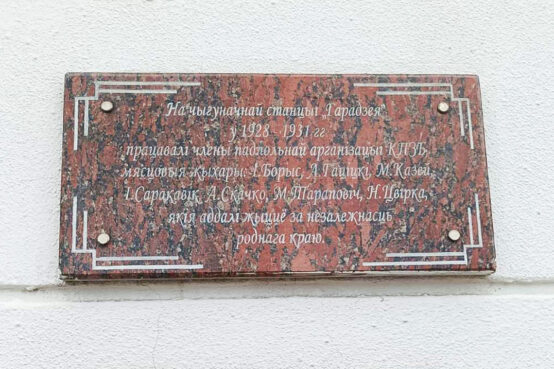 На чыгуначнай станцыі „Гарадзея"
у 1928 - 1931 гг.
працавалі члены падпольнай арганізацыі КПЗБ,
мясцовыя жыхары: І.Борыс, А.Гаціцкі, М.Казей,
І.Саракавік, А.Скачко, М.Тараповіч, Н.Цвірка,
якія аддалі жыццё за незалежнасць
роднага краю.